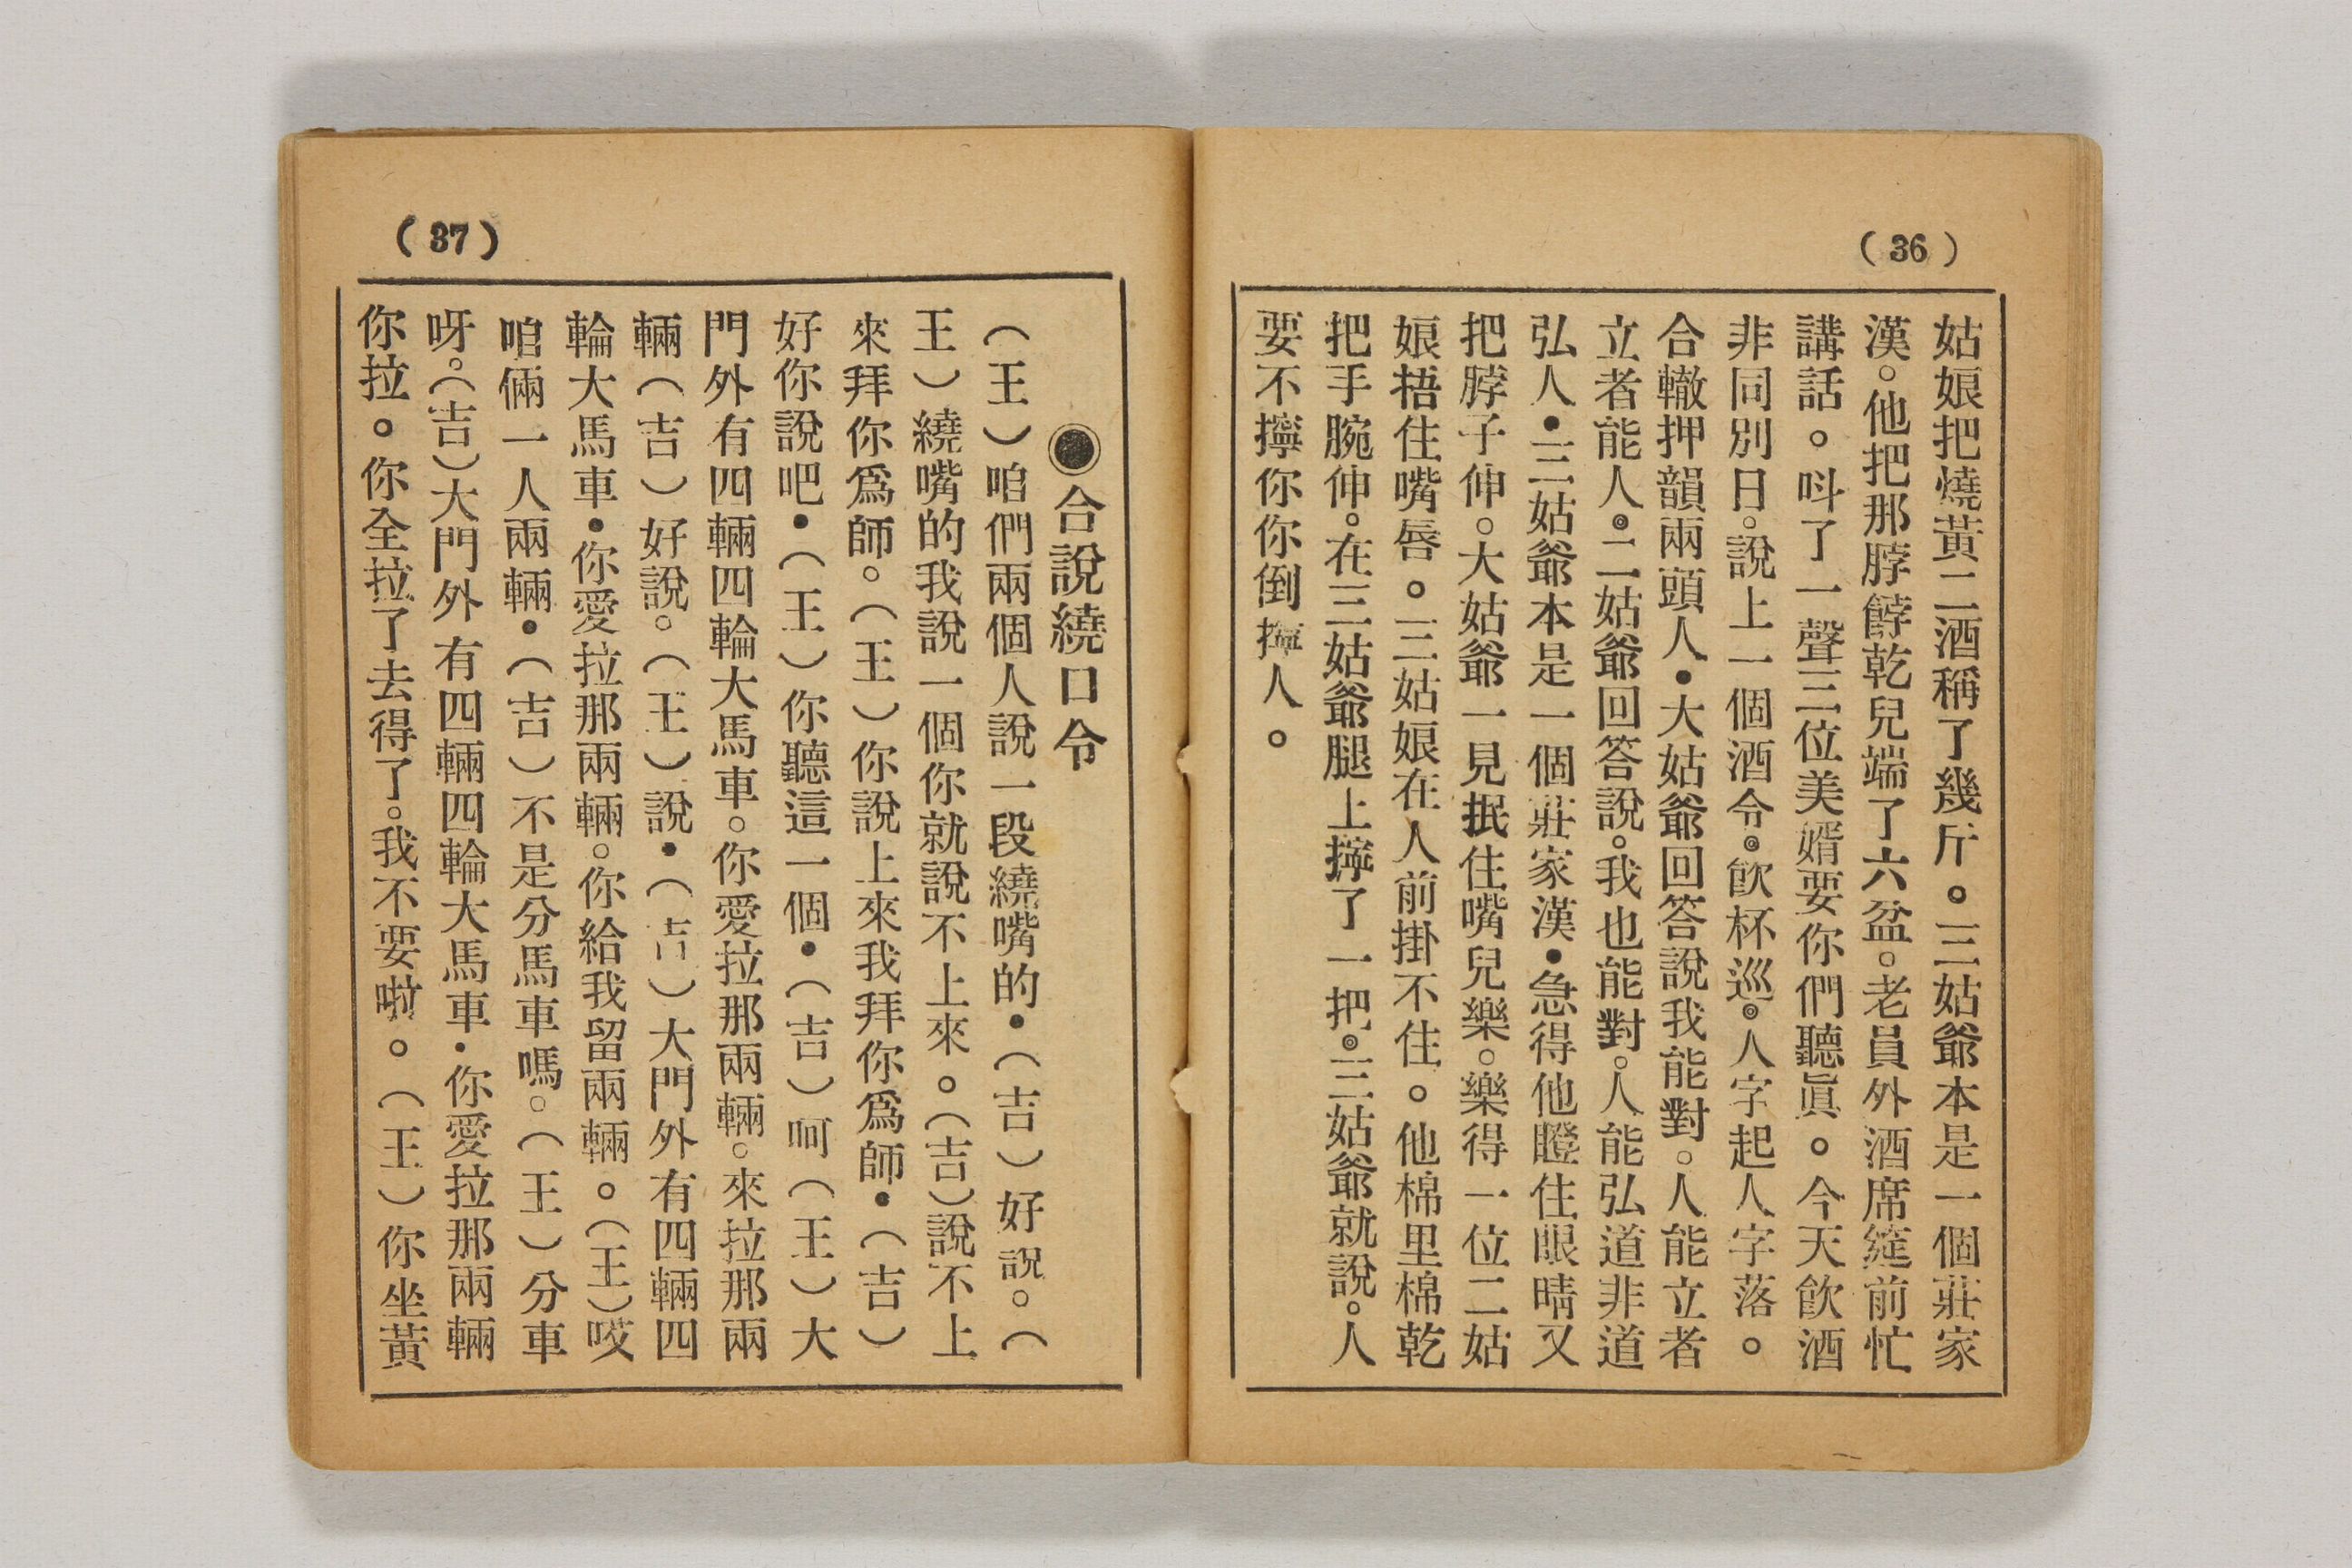 (36)
姑娘把燒黃二酒稱了幾斤。三姑爺本是一個莊家
漢。他把那脖餑乾兒端了六盆。老員外酒席筵前忙
講話。呌了一聲三位美婿要你們聽眞。今天飮酒
非同別日。說上一個酒令。飮杯巡。人字起人字落。
合轍押韻兩頭人•大姑爺回答說我能對。人能立者
立者能人。二姑爺回答說。我也能對。人能弘道非道
弘人•三姑爺本是一個莊家漢•急得他瞪住眼睛又
把脖子伸。大姑爺一見抿住嘴兒樂。樂得一位二姑
娘捂住嘴唇。三姑娘在人前掛不住。他棉里棉乾
把手腕伸。在三姑爺腿上擰了一把。三姑爺就說。人
要不擰你你倒擰人。
(37)
◉合說繞口令
(王)咱們兩個人說一段繞嘴的•(吉)好説。(
王)繞嘴的我說一個你就說不上來。(吉)說不上
來拜你爲師。(王)你說上來我拜你爲師•(吉)
好你說吧•(王)你聽這一個•(吉)呵(王)大
門外有四輛四輪大馬車。你愛拉那兩輛。來拉那兩
輛(吉)好說。(王)說•(吉)大門外有四輛四
輪大馬車•你愛拉那兩輛。你給我留兩輛。(王)哎
咱倆一人兩輛•(吉)不是分馬車嗎。(王)分車
呀。(吉)大門外有四輛四輪大馬車•你愛拉那兩輛
你拉。你全拉了去得了。我不要啦。(王)你坐黃